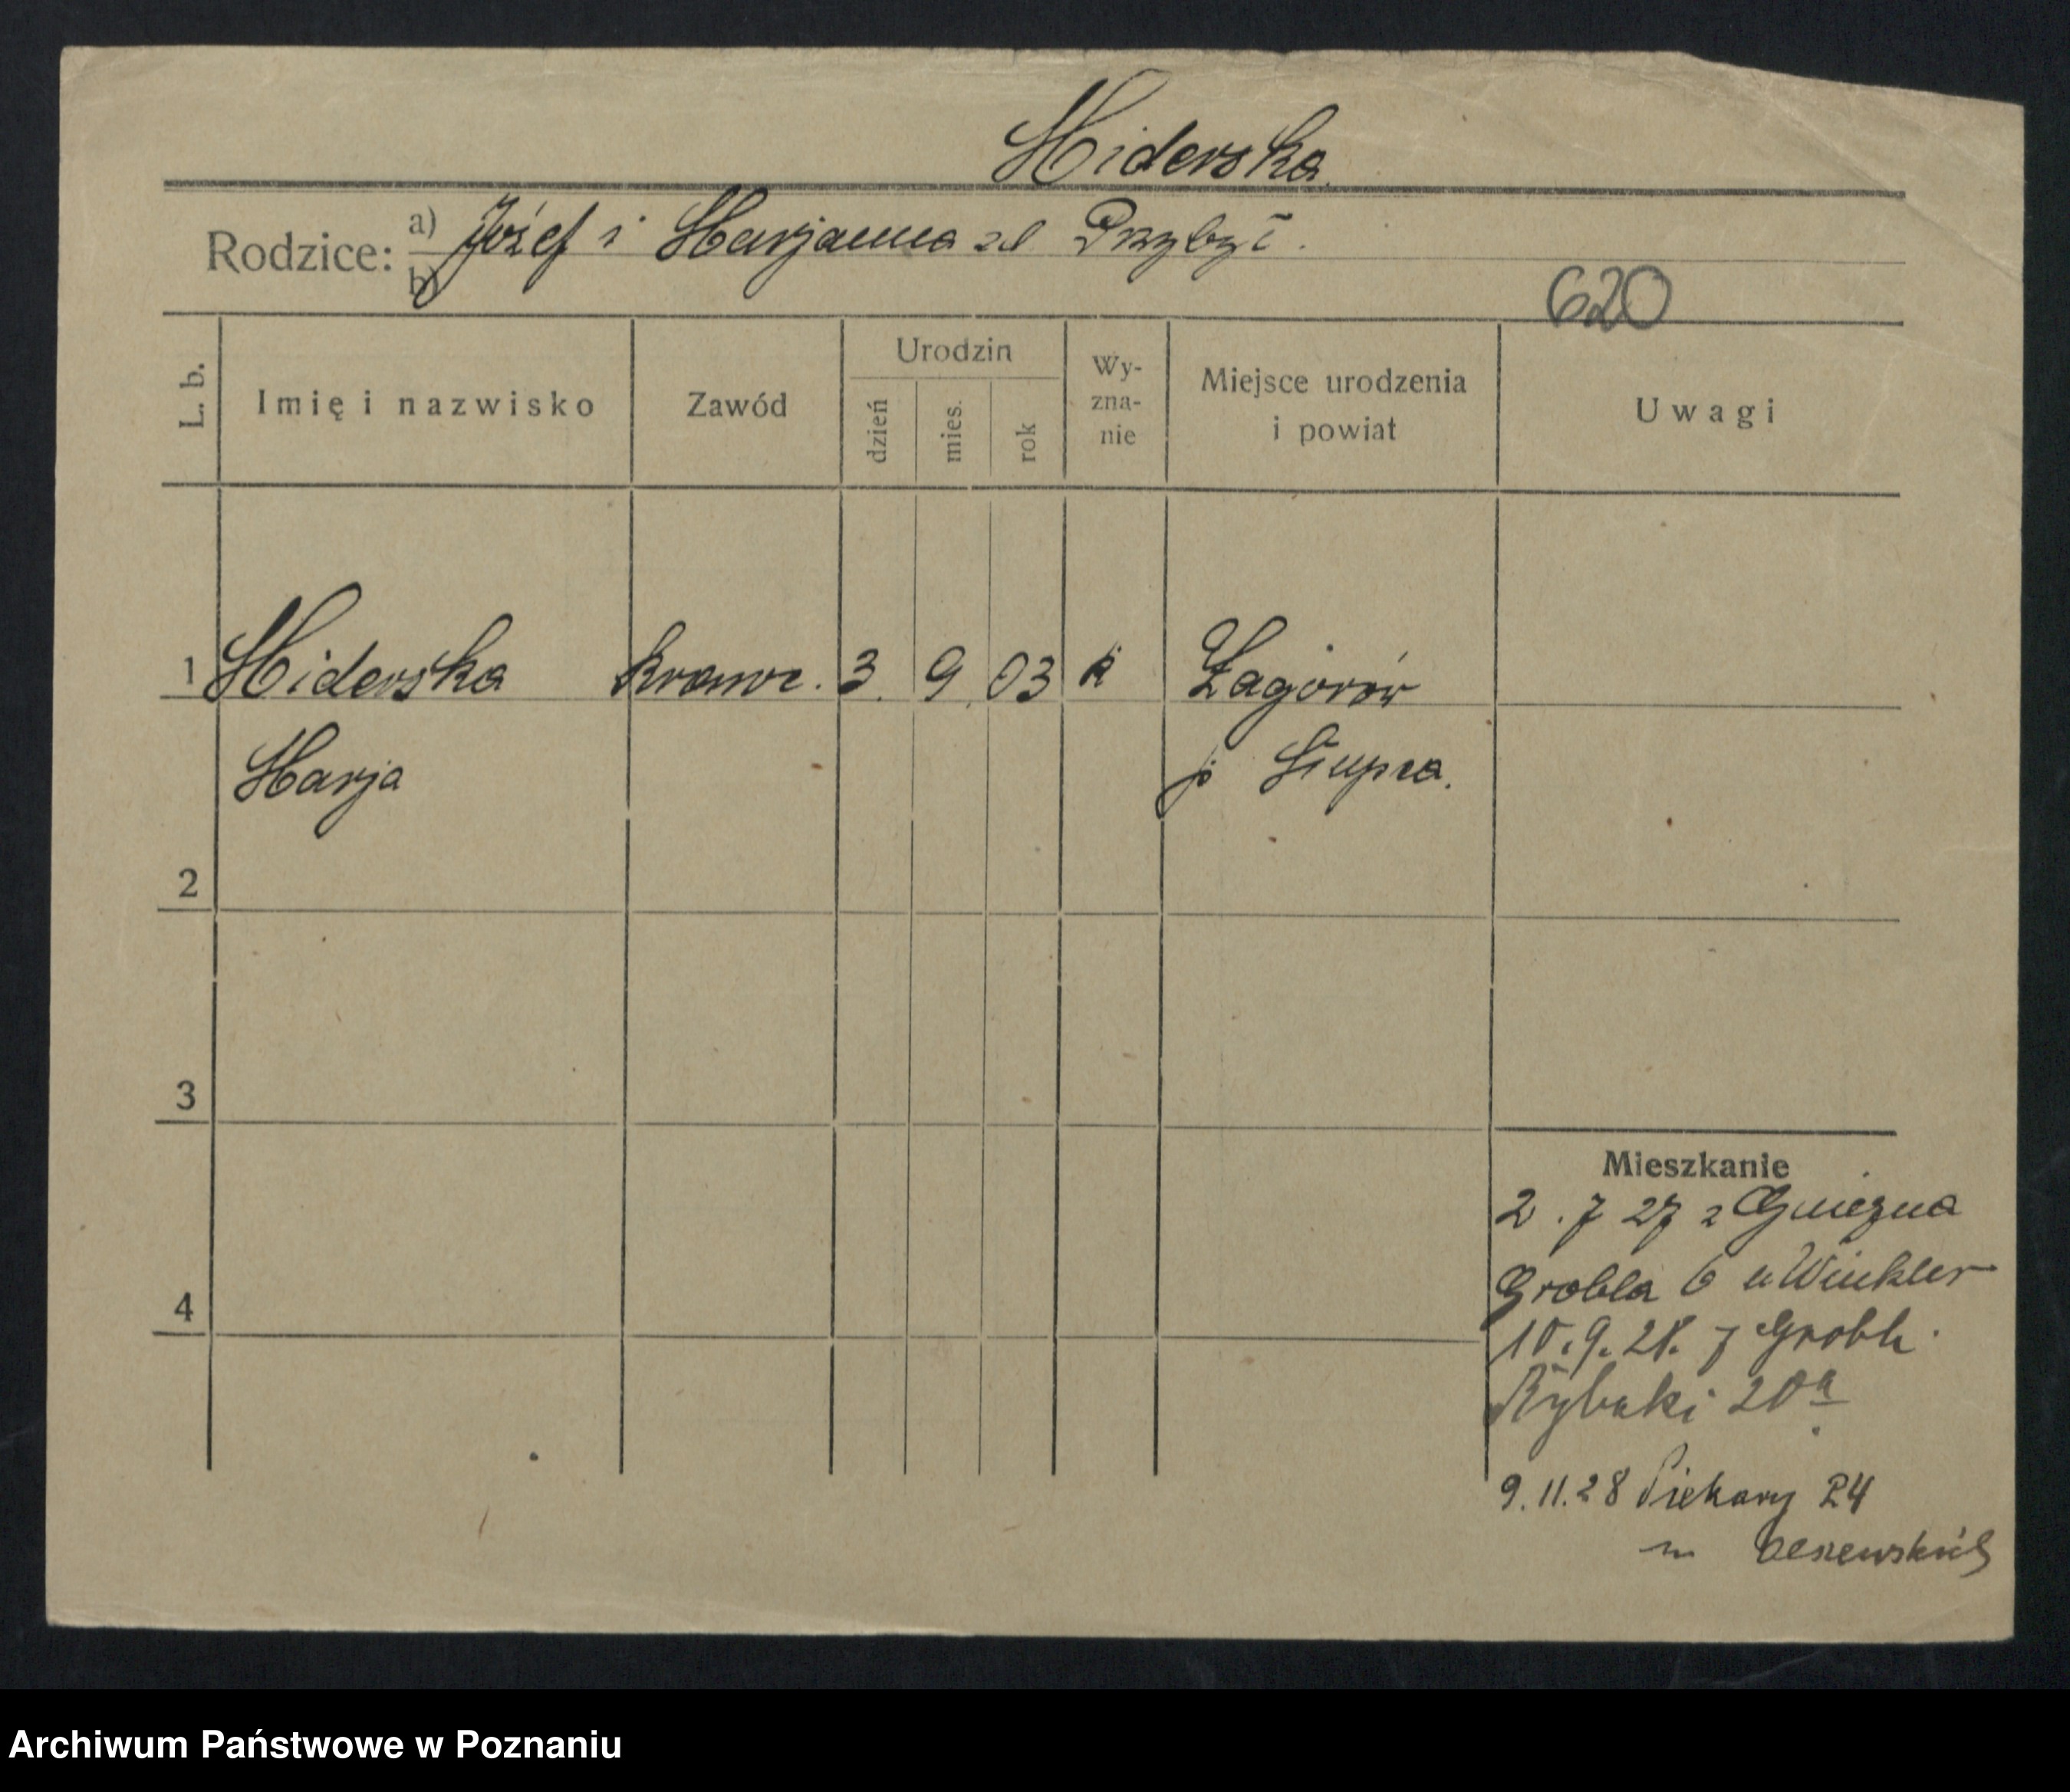 Miderska
Rodzice: a) Józef i Marjanna zd Przybył.
b)
620
L. b. Imię i nazwisko Zawód Urodzin dzień mies. rok Wy-zna-nie Miejsce urodzenia i powiat Uwagi
1 Miderska krawc. 3. 9. 03 k Zagórów
Marja p Słupca.
2
3
Mieszkanie
2. 7 27 z Gniezna
Grobla 6 u Winkler
4
10.9.28. z Grobli.
Rybaki 20a
9.11.28 Piekary 24
Archiwum Państwowe w Poznaniu